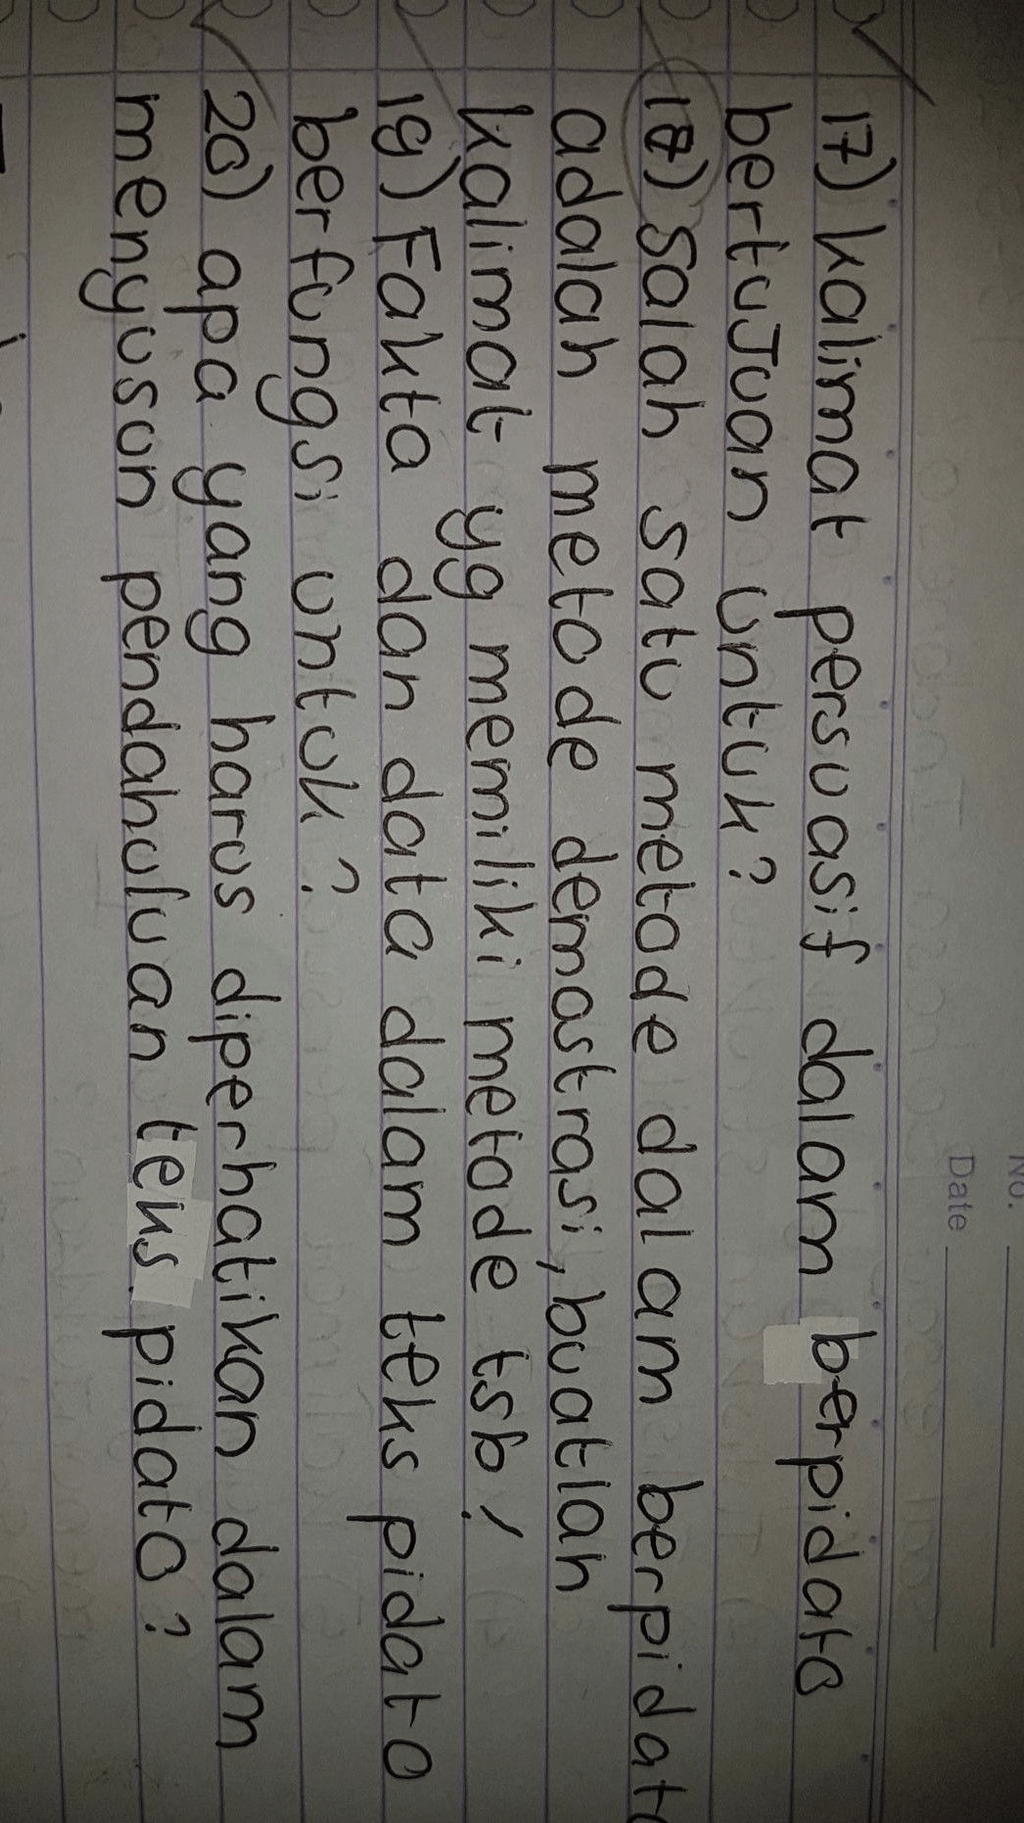 No.
Date
17) kalimat persuasif dalam berpidato
bertuJuan untuk?
18) Salah satu metode dalam berpidato
adalah metode demostrasi, buatlah
kalimat yg memiliki metode tsb!
19) Fakta dan data dalam teks pidato
berfungsi untuk?
20) apa yang harus diperhatikan dalam
menyusun pendahuluan teks pidato?